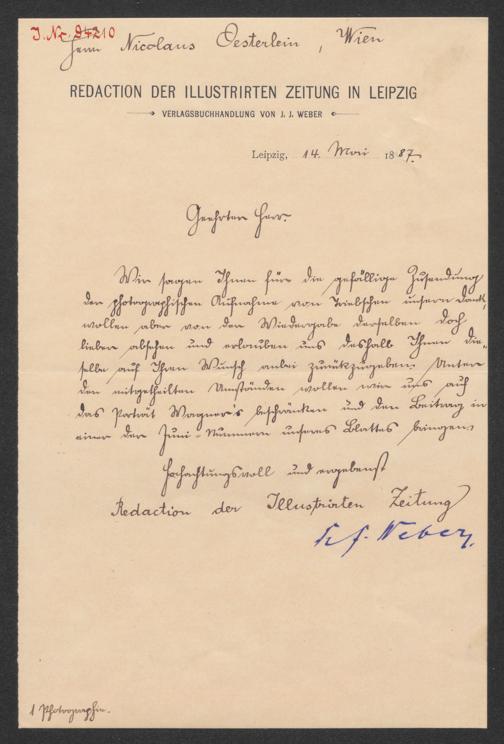 J. Nr. 94210
Herrn Nicolaus Oesterlein, Wien
REDACTION DER ILLUSTRIRTEN ZEITUNG IN LEIPZIG
VERLAGSBUCHHANDLUNG VON J. J. WEBER
Leipzig, 14. Mai 1887.
Geehrter Herr.
Wir sagen Ihnen für die gefällige Zusendung
der photographischen Aufnahme von Triebschen unsern Dank,
wollen aber von der Wiedergabe derselben doch
lieber absehen und erlauben uns deshalb Ihnen die-
selbe auf Ihren Wunsch anbei zurückzugeben. Unter
den mitgetheilten Umständen wollen wir uns auf
das Porträt Wagner's beschränken und den Beitrag in
einer der Juni-Nummern unseres Blattes bringen.
Hochachtungsvoll und ergebenst
Redaction der Illustrirten Zeitung
Weber.
1 Photographie.